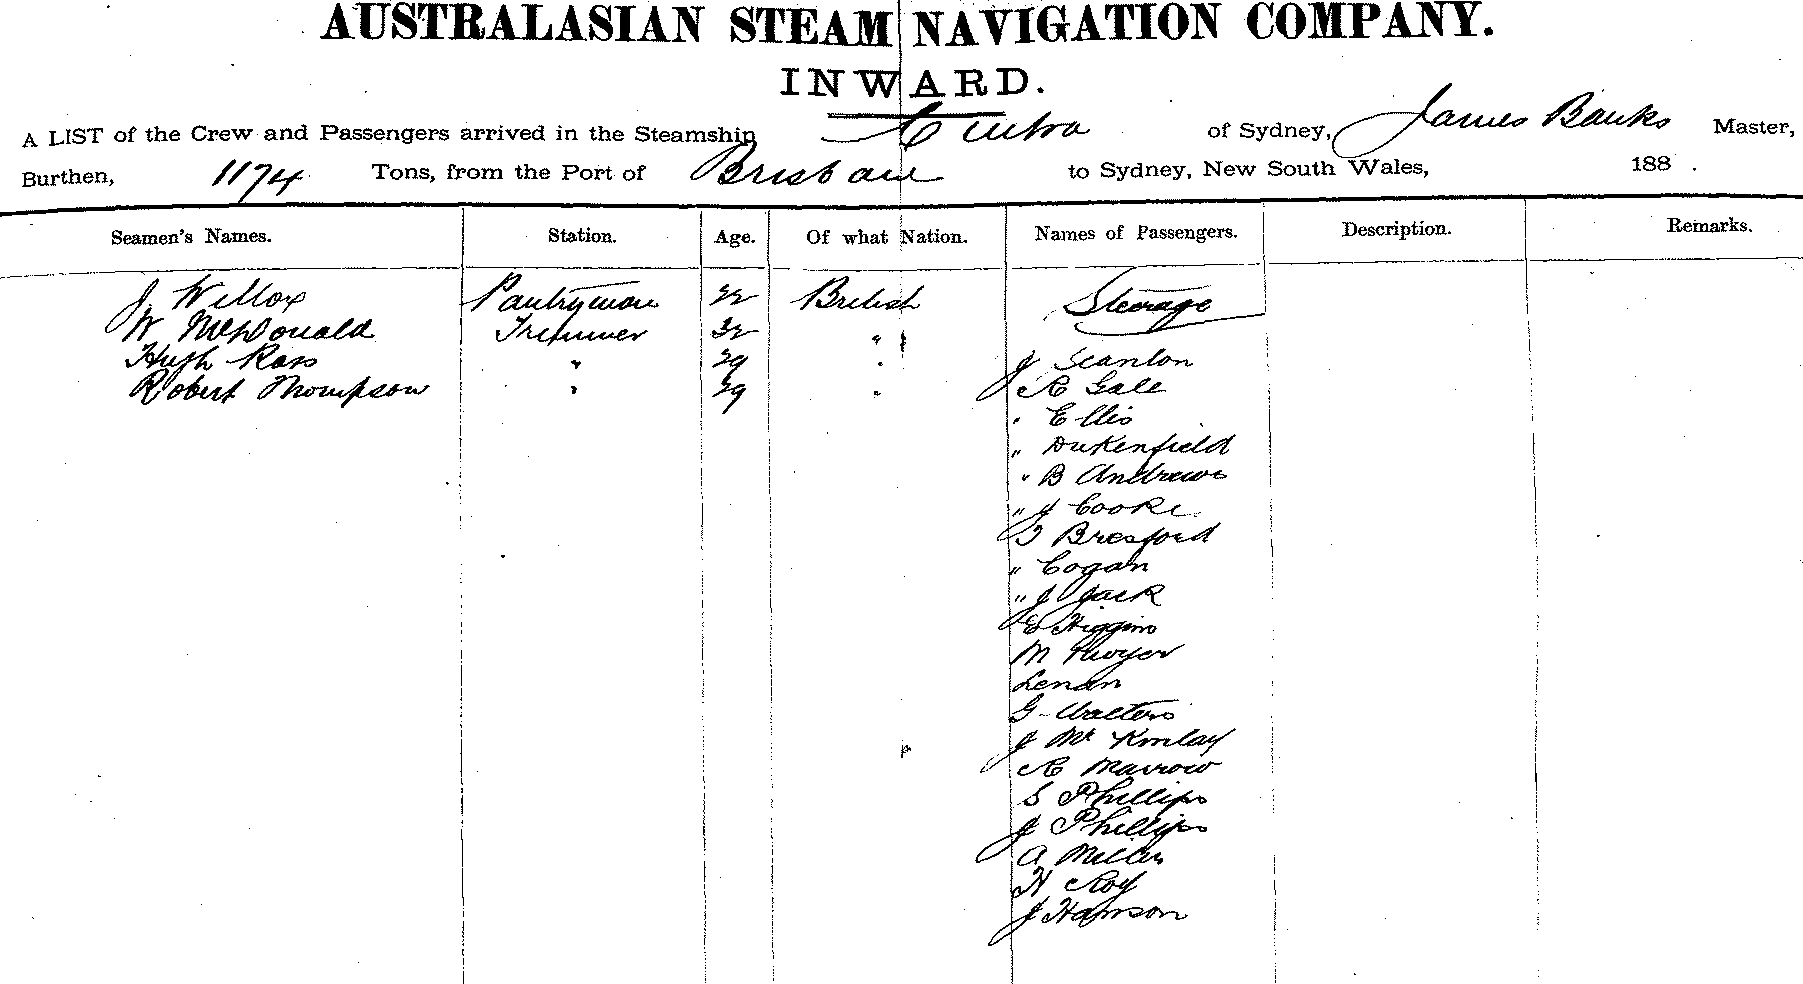 AUSTRALASIAN STEAM NAVIGATION COMPANY.
INWARD.
A LIST of the Crew and Passengers arrived in the Steamship Cintra of Sydney, James Banks Master,
Burthen, 1174 Tons, from the Port of Brisbane to Sydney, New South Wales, 188 .
Seamen's Names. Station. Age. Of what Nation. Names of Passengers. Description. Remarks.
J Willox Pantryman 22 British Steerage
W McDonald Trimmer 32 " "
Hugh Ross " 29 "
Robert Thompson " 29 "
J Scanlon
R Gale
" Ellis
" Dukenfield
" B Andrews
" J Cooke
T Bresford
" Cogan
" J Jack
E Higgins
M Dwyer
Lenan
G Walters
J McKinlay
R Marrow
S Phillips
J Phillips
A Miller
H Roy
J Hanson